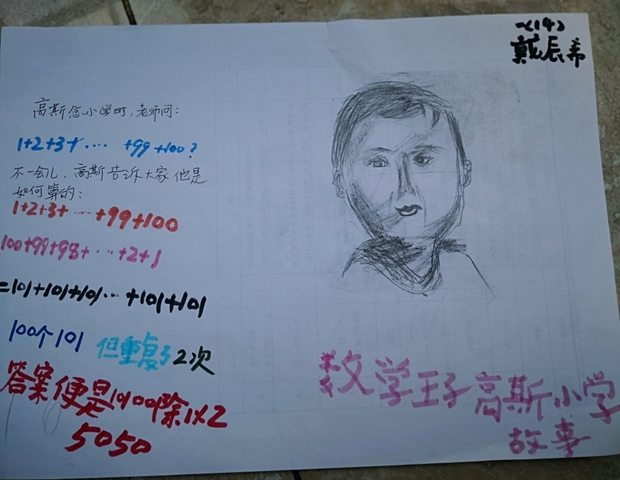 一(14)
戴辰希
高斯念小学时,老师问:
1+2+3+ ‥‥ +99+100?
不一会儿,高斯告诉大家他是
如何算的:
1+2+3+ ‥‥ +99+100
100+99+98+ ‥‥ +2+1
=101+101+101 ‥‥ +101+101
100个101 但重复了2次
答案便是10100除以2
5050
数学王子高斯小学
故事